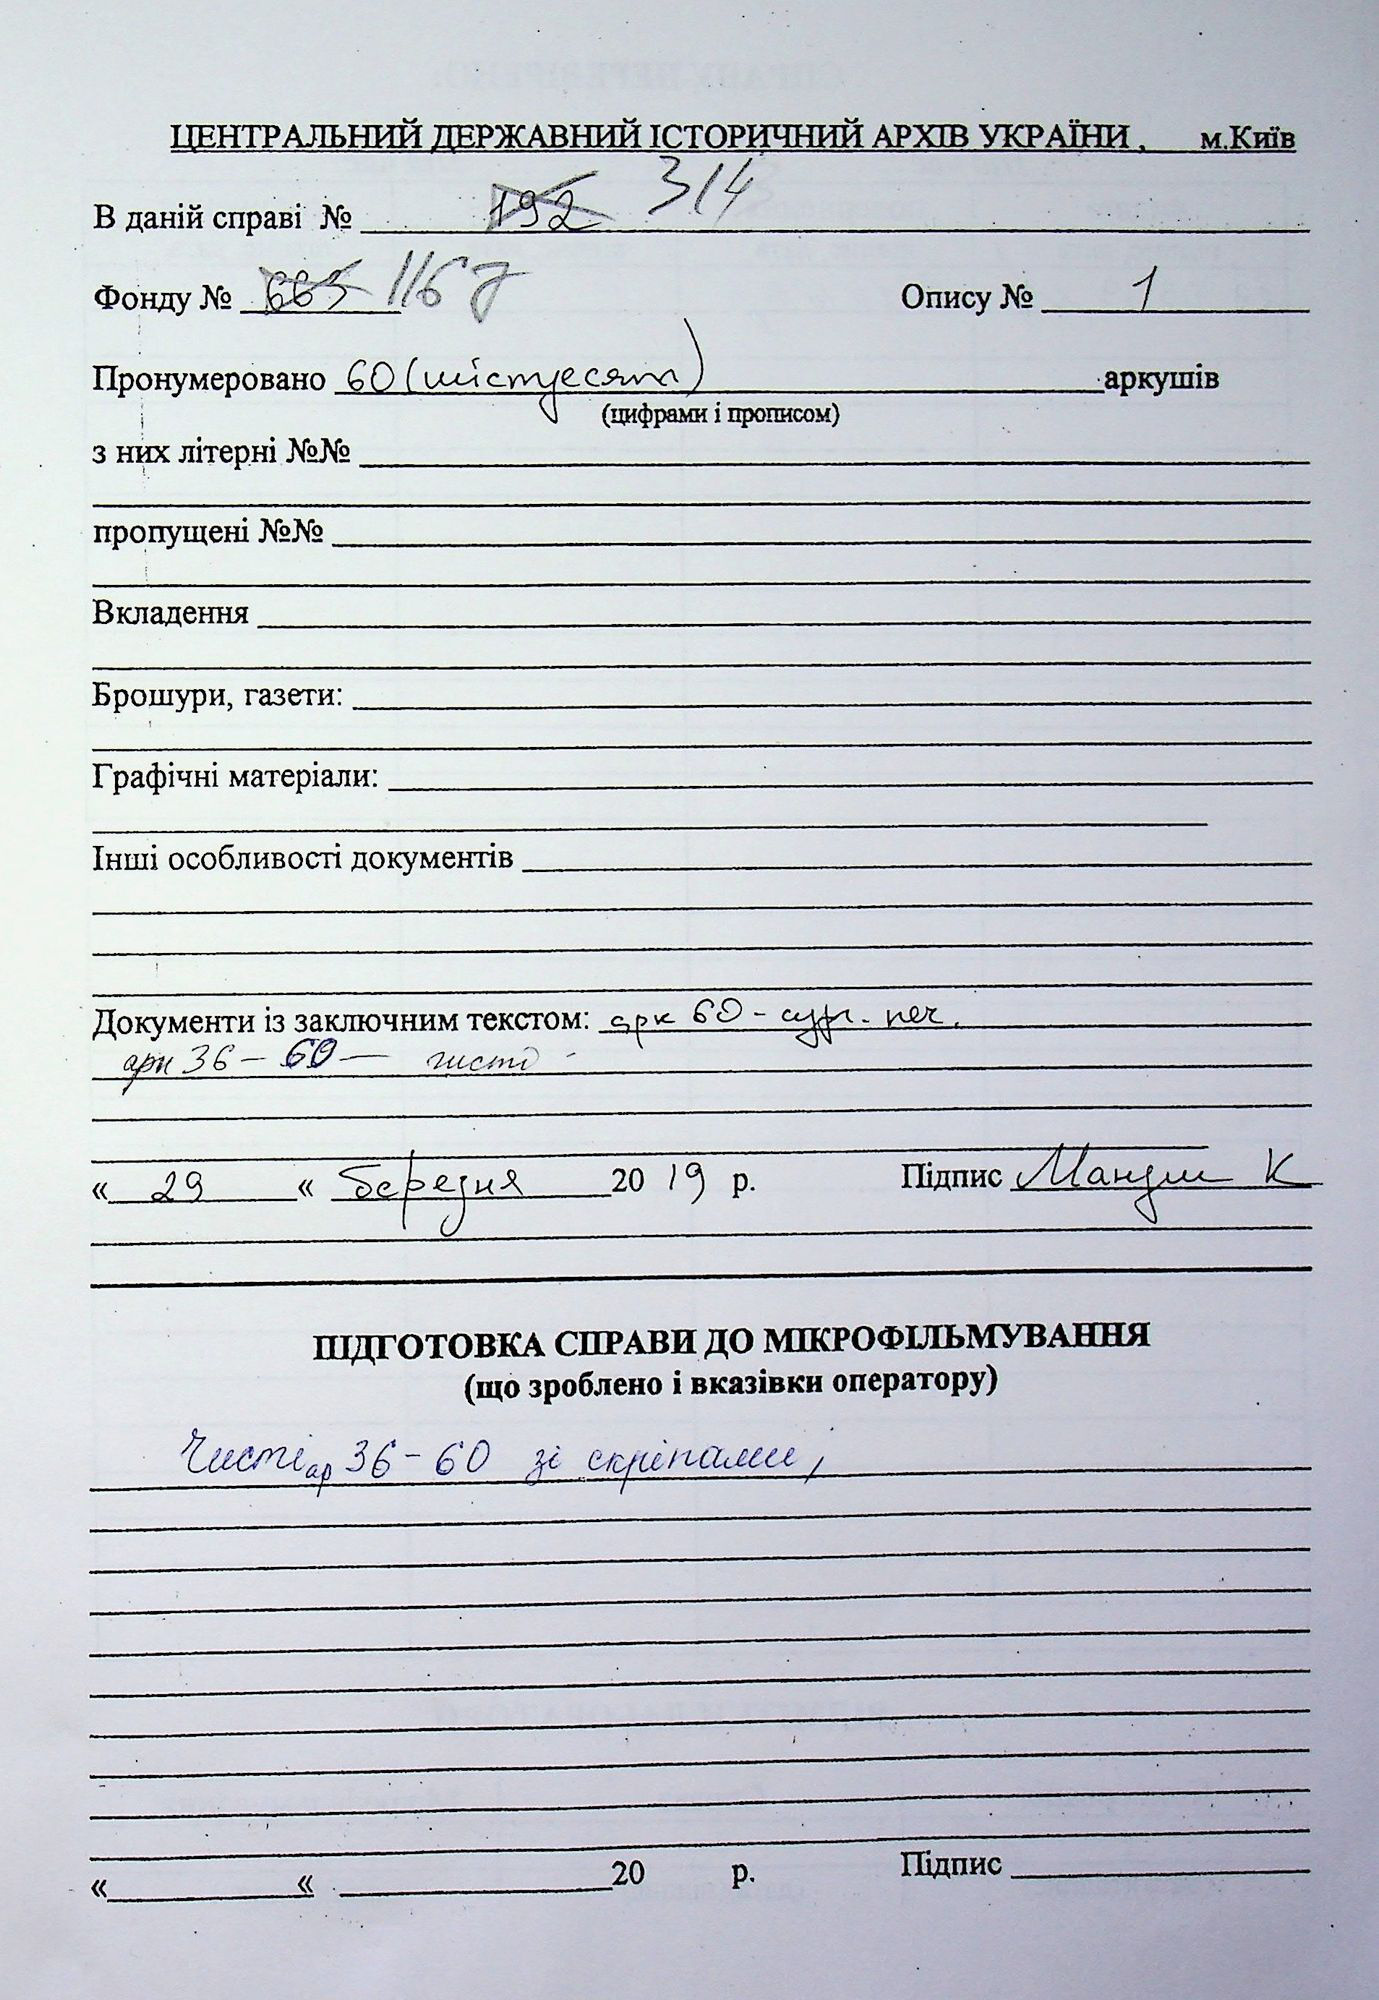 ЦЕНТРАЛЬНИЙ ДЕРЖАВНИЙ ІСТОРИЧНИЙ АРХІВ УКРАЇНИ, м.Київ
В даній справі № 192 314
Фонду № 1167 Опису № 1
Пронумеровано 60 (шістдесят) аркушів
(цифрами і прописом)
з них літерні №№
пропущені №№
Вкладення
Брошури, газети:
Графічні матеріали:
Інші особливості документів
Документи із заключним текстом: арк 60 - сург. печ.
арк 36 - 60 — чисті
« 29 « березня 2019 р. Підпис
ПІДГОТОВКА СПРАВИ ДО МІКРОФІЛЬМУВАННЯ
(що зроблено і вказівки оператору)
Чисті ар 36-60 зі скріпами,
« « 20 р. Підпис